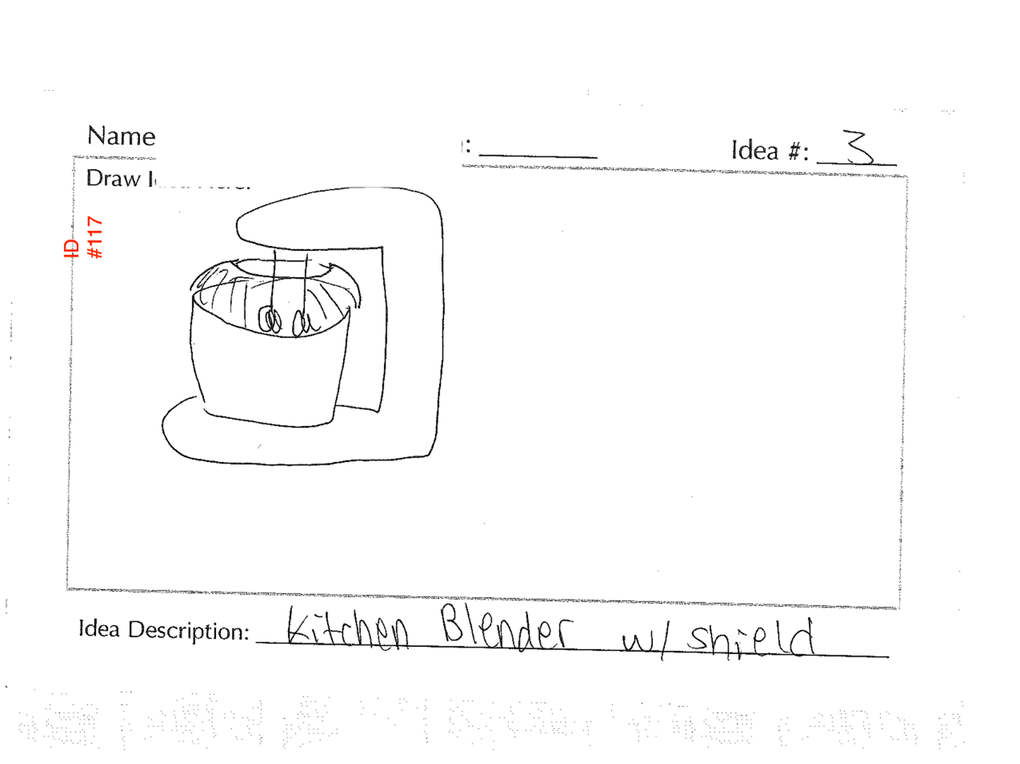 Name : Idea #: 3
Draw I
ID
#117
Idea Description: Kitchen Blender w/ shield